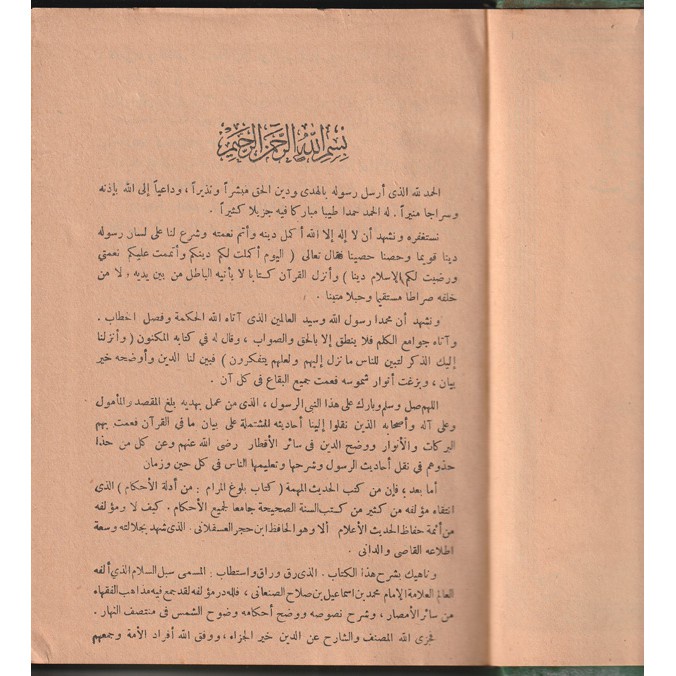 بسم الله الرحمن الرحيم
الحمد لله الذى أرسل رسوله بالهدى ودين الحق مبشراً ونذيراً ، وداعياً إلى الله بإذنه
وسراجا منيراً . له الحمد حمدا طيبا مباركا فيه جزيلا كثيراً .
نستغفره ونشهد أن لا إله إلا الله أكمل دينه وأتم نعمته وشرع لنا على لسان رسوله
دينا قويما وحصنا حصينا فقال تعالى ( اليوم أكملت لكم دينكم وأتممت عليكم نعمتي
ورضيت لكم الاسلام دينا ) وأنزل القرآن كتابا لا يأتيه الباطل من بين يديه ولا من
خلفه صراطا مستقيما وحبلا متينا .
ونشهد أن محمدا رسول الله وسيد العالمين الذى آتاه الله الحكمة وفصل الخطاب .
وآتاه جوامع الكلم فلا ينطق إلا بالحق والصواب ، وقال له فى كتابه المكنون ( وأنزلنا
إليك الذكر لتبين للناس ما نزل إليهم ولعلهم يتفكرون ) فبين لنا الدين وأوضحه خير
بيان ، وبزغت أنوار شموسه فعمت جميع البقاع فى كل آن .
اللهم صل وسلم وبارك على هذا النبى الرسول ، الذى من عمل بهديه بلغ المقصد والمأمول .
وعلى آله وأصحابه الذين نقلوا إلينا أحاديثه المشتملة على بيان ما فى القرآن فعمت بهم
البركات والأنوار ووضح الدين فى سائر الأقطار رضى الله عنهم وعن كل من حذا
حذوهم فى نقل أحاديث الرسول وشرحها وتعليمها الناس فى كل حين وزمان
أما بعد ؛ فإن من كتب الحديث المهمة ( كتاب بلوغ المرام : من أدلة الأحكام ) الذى
انتقاه مؤلفه من كثير من كتب السنة الصحيحة جامعا لجميع الأحكام . كيف لا ومؤلفه
من أئمة حفاظ الحديث الأعلام ألا وهو الحافظ ابن حجر العسقلانى . الذى شهد بجلالته وسعة
اطلاعه القاصى والدانى .
وناهيك بشرح هذا الكتاب . الذى رق وراق واستطاب : المسمى سبل السلام الذى ألفه
العالم العلامة الإمام محمد بن اسماعيل بن صلاح الصنعانى ، فلله در مؤلفه لقد جمع فيه مذاهب الفقهاء
من سائر الأمصار ، وشرح نصوصه ووضح أحكامه وضوح الشمس فى منتصف النهار .
فجزى الله المصنف والشارح عن الدين خير الجزاء ، ووفق الله أفراد الأمة وجمعهم